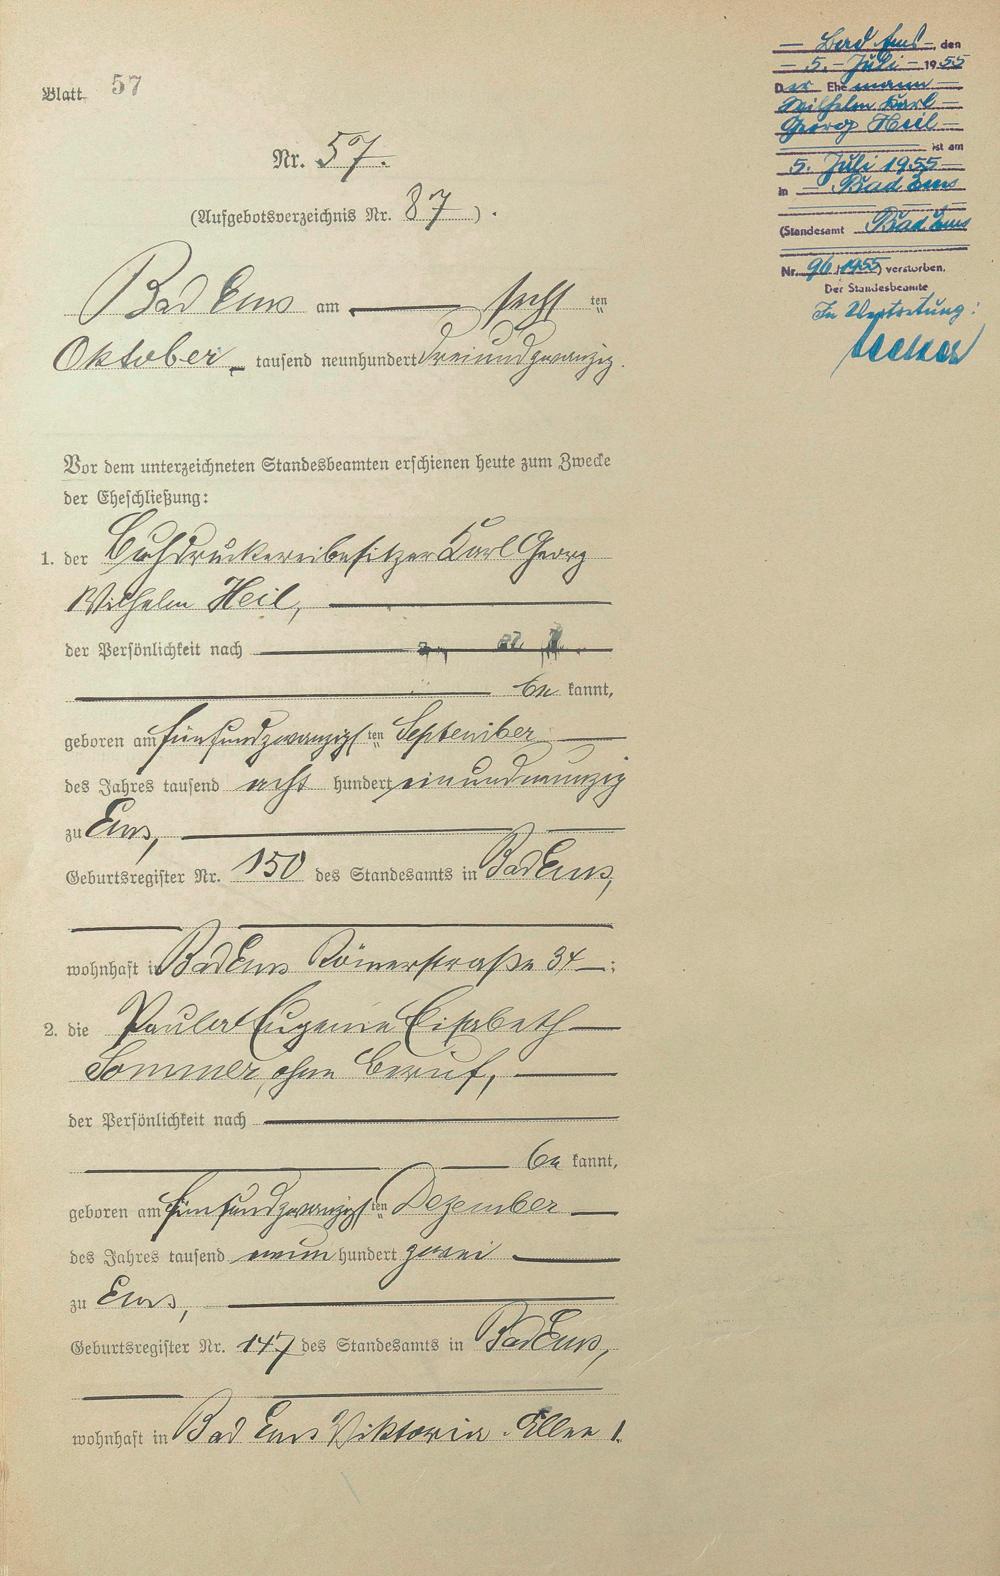 Blatt 57
Nr. 57.
(Aufgebotsverzeichnis Nr. 87).
Bad Ems am sechsten
Oktober tausend neunhundert dreiundzwanzig.
Vor dem unterzeichneten Standesbeamten erschienen heute zum Zwecke
der Eheschließung:
1. der Buchdruckereibesitzer Karl Georg
Wilhelm Heil,
der Persönlichkeit nach
bekannt,
geboren am fünfundzwanzigsten September
des Jahres tausend acht hundert einundneunzig
zu Ems,
Geburtsregister Nr. 150 des Standesamts in Bad Ems,
wohnhaft in Bad Ems Römerstraße 34;
2. die Paula Eugenie Elisabeth
Sommer, ohne Beruf,
der Persönlichkeit nach
bekannt,
geboren am fünfundzwanzigsten Dezember
des Jahres tausend neun hundert zwei
zu Ems,
Geburtsregister Nr. 147 des Standesamts in Bad Ems,
wohnhaft in Bad Ems Viktoria-Allee 1.
Bad Ems, den
5. Juli 1955
Der Ehemann
Wilhelm Karl
Georg Heil
ist am
5. Juli 1955
in Bad Ems
(Standesamt Bad Ems
Nr. 96/1955) verstorben.
Der Standesbeamte
In Vertretung: